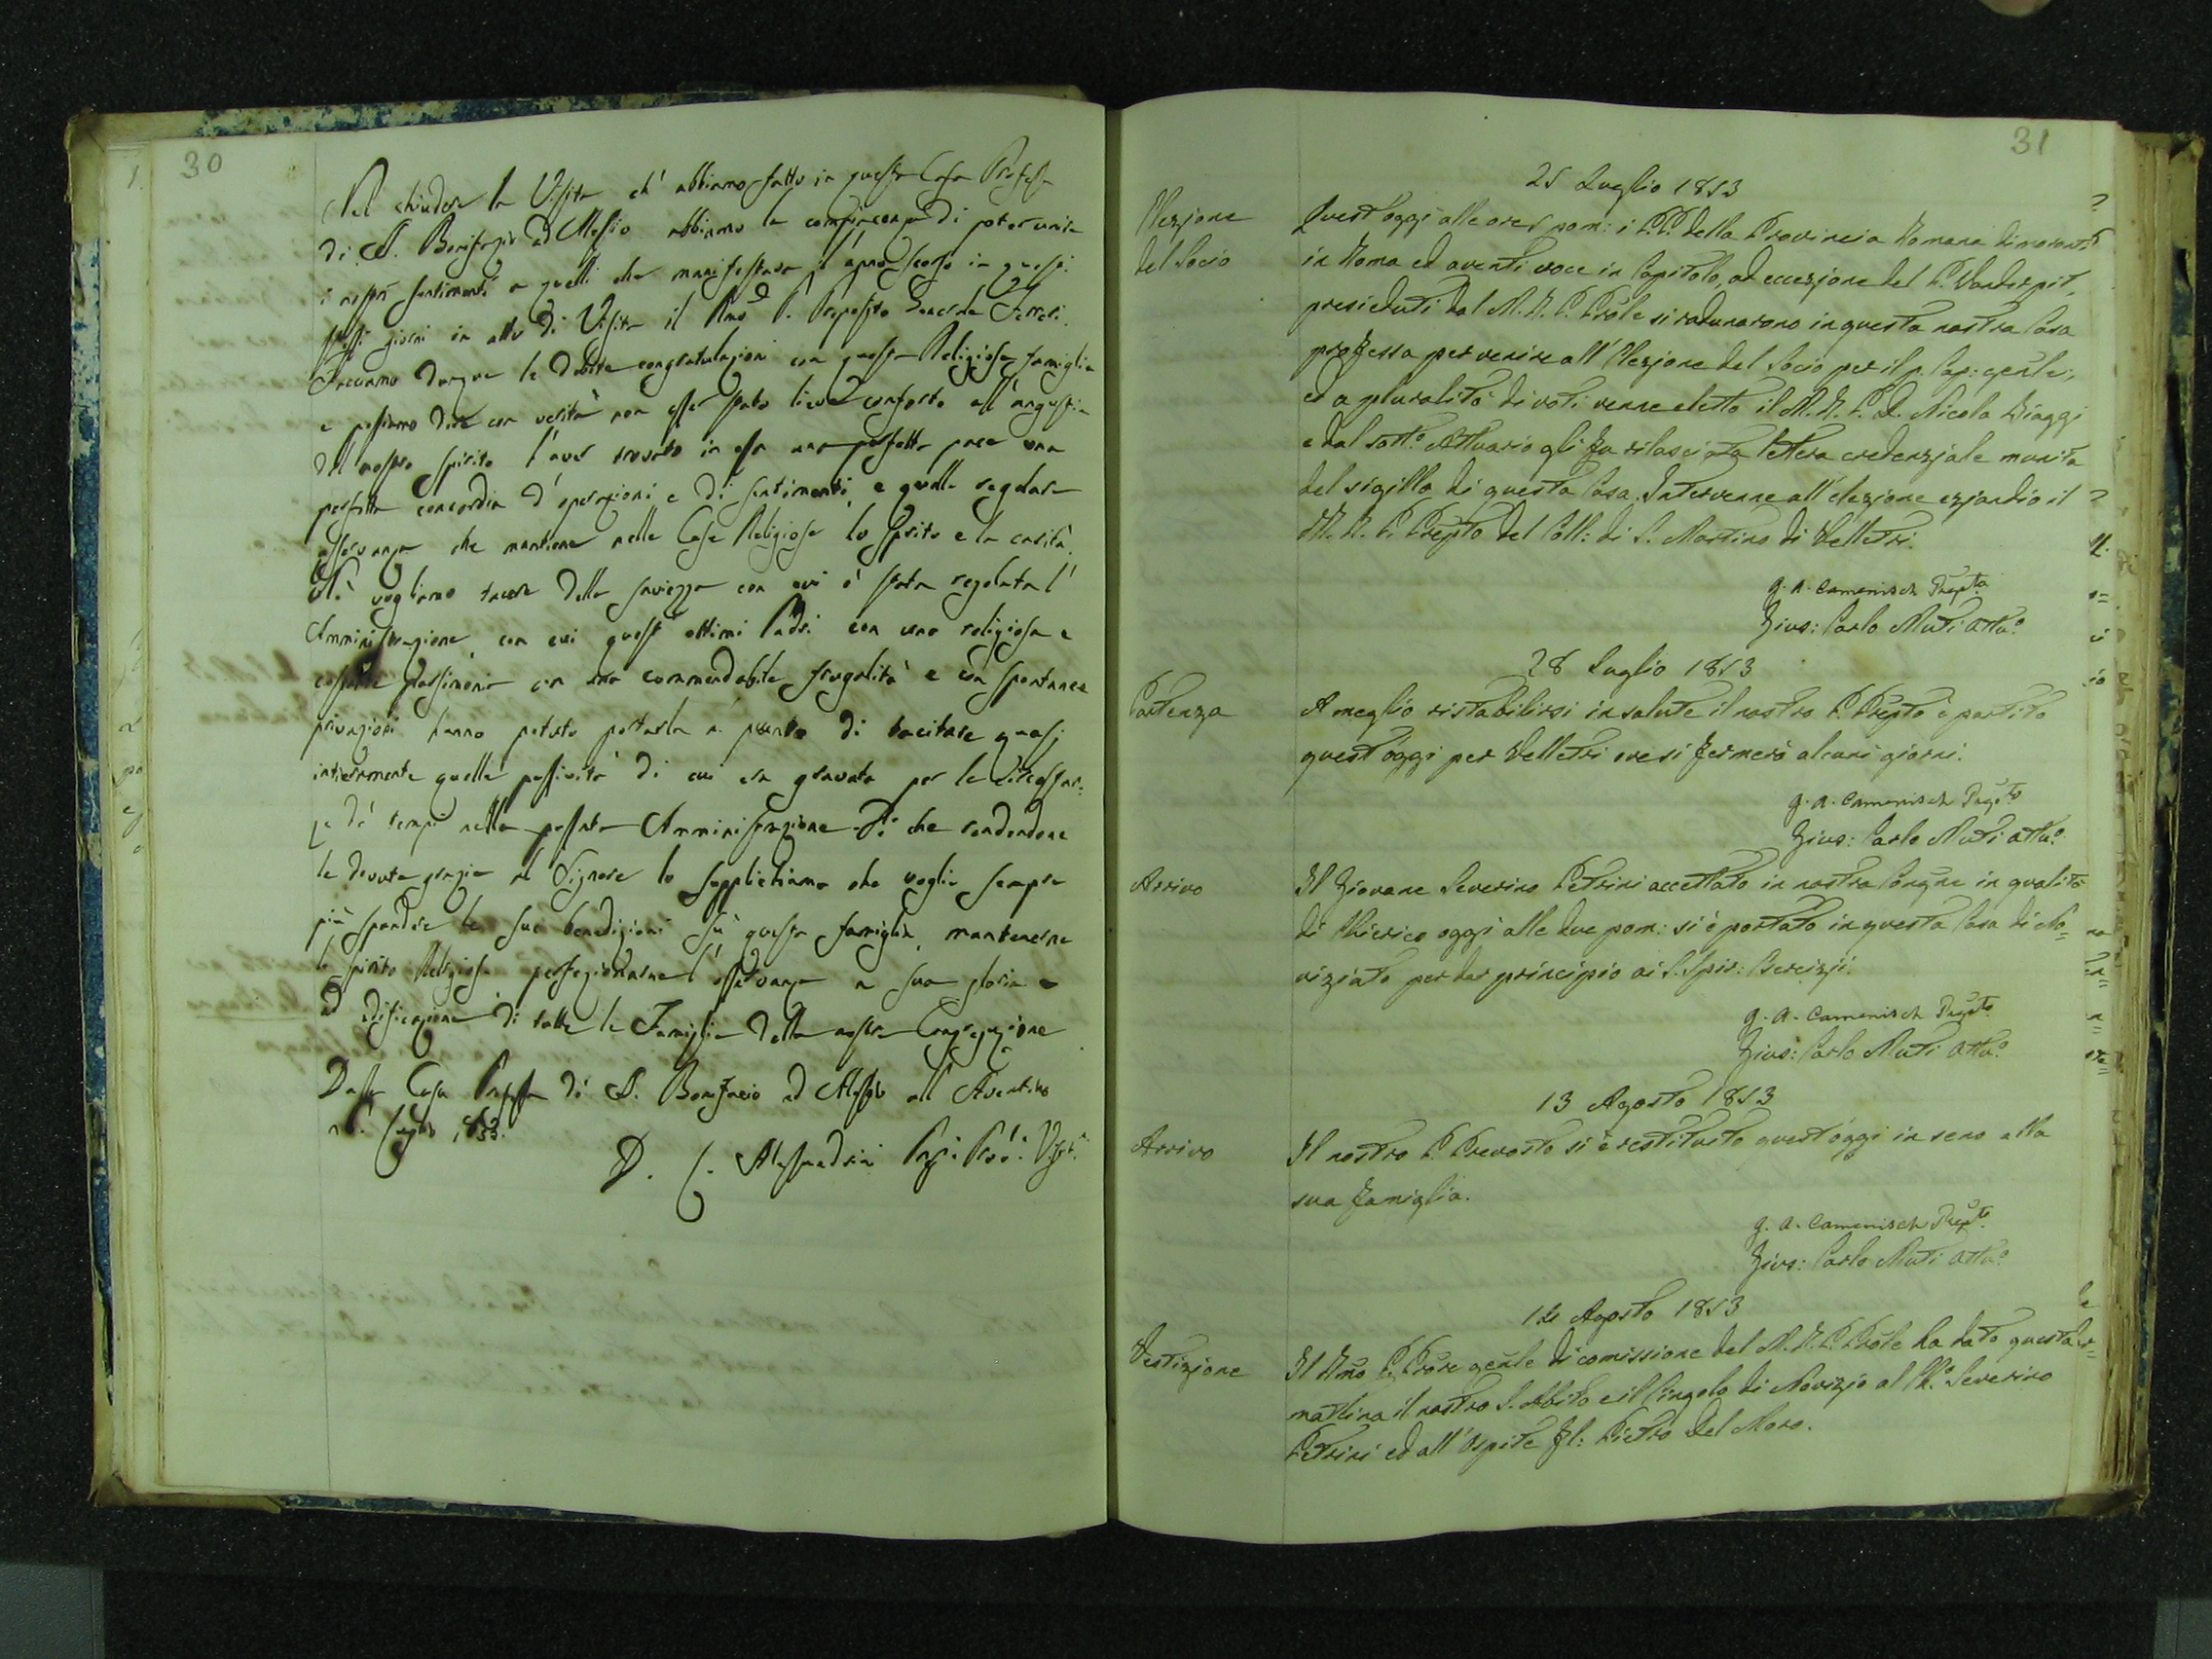 30
Nel chiudere la Visita ch' abbiamo fatto in questa Casa Professa
di S. Bonifazio ed Alessio abbiamo la compiacenza di poter unire
i nostri sentimenti a quelli che manifestava l'anno scorso in questi
stessi giorni in atto di Visita il Rmo P. Preposito Generale Ferreri.
Facciamo dunque le dovute congratulazioni con questa Religiosa famiglia
e possiamo dire con verità non esser stato lieve conforto all'angustia
del nostro spirito l'aver trovato in essa una perfetta pace una
perfetta concordia d'operazioni e di sentimenti e quella regolare
osservanza che mantiene nelle Case Religiose lo Spirito e la carità.
Nè vogliamo tacere della saviezza con cui è stata regolata l'
Amministrazione, con cui questi ottimi Padri con una religiosa e
parsimonia con una commendabile frugalità e con spontanee
privazioni hanno potuto portarla a punto di tacitare quasi
intieramente quelle passività di cui era gravata per le circostan=
ze de' tempi nella passata Amministrazione. Di che rendendone
le dovute grazie al Signore lo supplichiamo che voglia sempre
più spandere le sue benedizioni su questa famiglia, mantenerne
lo spirito Religioso, perfezionarne l'osservanza a sua gloria e
ad edificazione di tutte le Famiglie della nostra Congregazione
Dalla Casa Professa di S. Bonifacio ed Alessio all'Aventino
Luglio 1853.
D. C. Alessandrini Visitre
31
25 Luglio 1853
Elezione
del Socio
Quest'oggi alle ore 5 pom: i PP. della Provincia Romana dimoranti
in Roma ed aventi voce in Capitolo, ad eccezione del P. Vanderpit,
presieduti dal M. R. P. Prõle si radunarono in questa nostra Casa
professa per venire all'Elezione del Socio per il p. Cap: gẽnle;
ed a pluralità di voti venne eletto il M. R. P. D. Nicola Biaggi
e dal sotto Attuario gli fu rilasciata lettera credenziale munita
del sigillo di questa Casa. Intervenne all'elezione eziandio il
M. R. P. Prepto del Coll: di S. Martino di Velletri.
G. A. Camenisch Prepto
Gius: Carlo Muti Attuo
28 Luglio 1853
Partenza
A meglio ristabilirsi in salute il nostro P. Prepto è partito
quest'oggi per Velletri ove si fermerà alcuni giorni.
G. A. Camenisch Prepto
Gius: Carlo Muti Attuo
Arrivo
Il Giovane Severino Petrini accettato in nostra Congne in qualità
di Chierico oggi alle due pom: si è portato in questa Casa di No=
viziato per dar principio ai S. Spir: Esercizj.
G. A. Camenisch Prepto
Gius: Carlo Muti Attuo
13 Agosto 1853
Arrivo
Il nostro P. Prevosto si è restituito quest'oggi in seno alla
sua famiglia.
G. A. Camenisch Prepto
Gius: Carlo Muti Attuo
14 Agosto 1853
Vestizione
Il Rmo P. Procre gẽnle di comissione del M. R. P. Prõle ha dato questa
mattina il nostro S. Abito e il Cingolo di Novizio al Cho Severino
Petrini ed all'Ospite Fl: Pietro Del Moro.